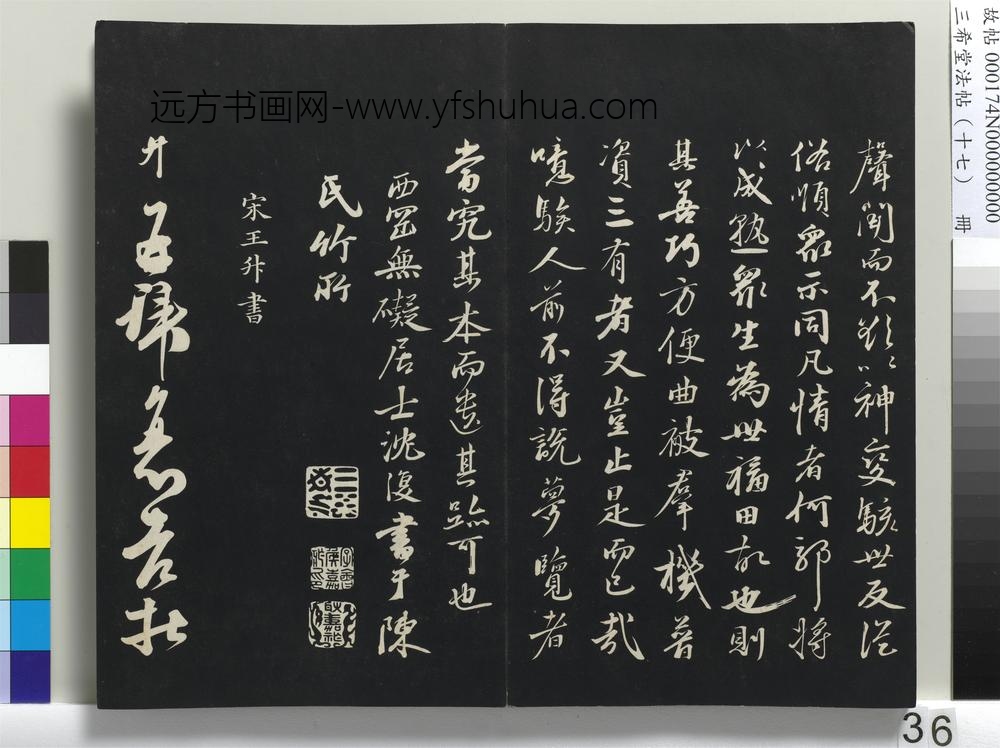 远方书画网-www.yfshuhua.com
故帖 000174N000000000
三希堂法帖（十七） 冊
聲聞而不欲以神變駭世反從
俗順眾示同凡情者何耶將
以成熟眾生為世福田故也則
其善巧方便曲被群機普
資三有者又豈止是而已哉
噫癡人前不得說夢覽者
當究其本而遺其跡可也
西呂無礙居士沈復書于陳
氏竹所
宋王升書
升
36